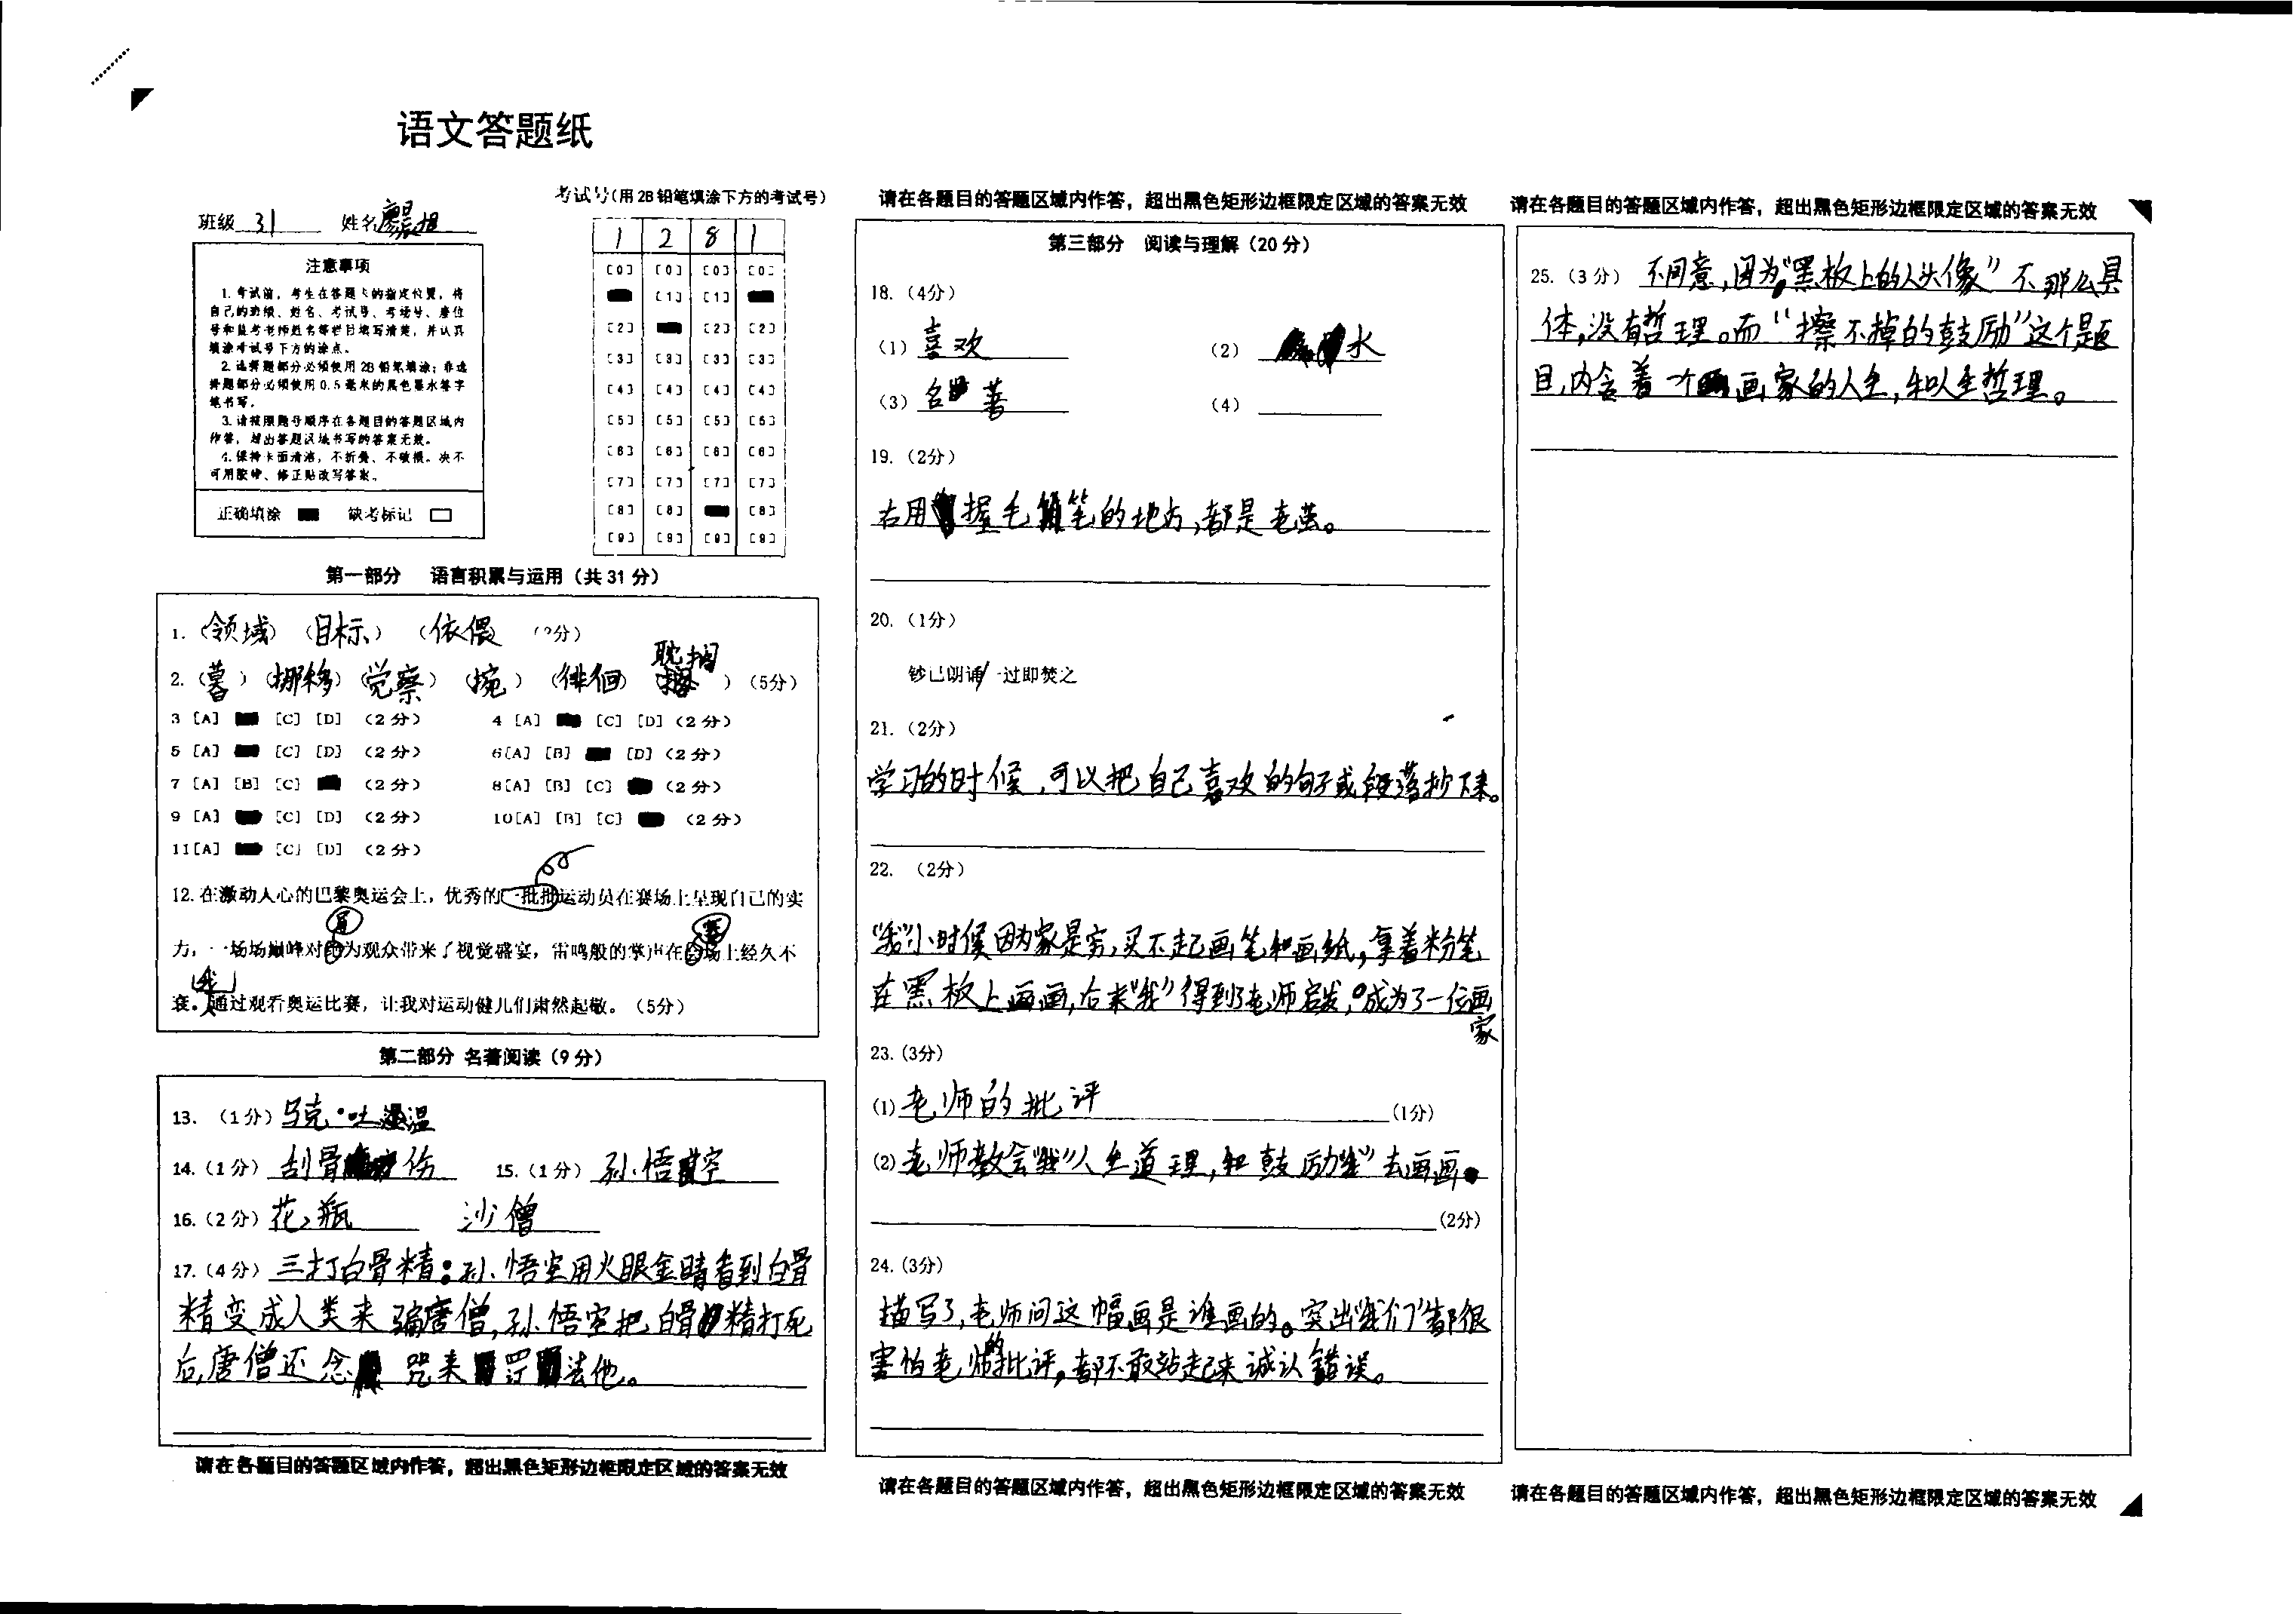 语文答题纸
班级 31 姓名
考试号(用2B铅笔填涂下方的考试号)
1 2 8 1
注意事项
1.考试前,考生在答题卡的指定位置,将
自己的班级、姓名、考试号、考场号、座位
号和监考老师姓名等栏目填写清楚,并认真
填涂考试号下方的涂点。
2.选择题部分必须使用2B铅笔填涂;非选
择题部分必须使用0.5毫米的黑色墨水签字
笔书写。
3.请按照题号顺序在各题目的答题区域内
作答,超出答题区域书写的答案无效。
4.保持卡面清洁,不折叠、不破损。决不
可用胶带、修正贴改写答案。
正确填涂 缺考标记
[0] [0] [0] [0]
[1] [1]
[2] [2] [2]
[3] [3] [3] [3]
[4] [4] [4] [4]
[5] [5] [5] [5]
[6] [6] [6] [6]
[7] [7] [7] [7]
[8] [8] [8]
[9] [9] [9] [9]
第一部分 语言积累与运用(共31分)
1.(领域)(目标)(依偎 分)
耽搁
2.(暮)(挪移)(觉察)(惋)(徘徊)( )(5分)
3 [A] [C] [D] (2分) 4 [A] [C] [D] (2分)
5 [A] [C] [D] (2分) 6[A] [B] [D] (2分)
7 [A] [B] [C] (2分) 8[A] [B] [C] (2分)
9 [A] [C] [D] (2分) 10[A] [B] [C] (2分)
11[A] [C] [D] (2分)
12.在激动人心的巴黎奥运会上,优秀的一批批运动员在赛场上呈现自己的实
力,一场场巅峰对 为观众带来了视觉盛宴,雷鸣般的掌声在 场上经久不
衰。通过观看奥运比赛,让我对运动健儿们肃然起敬。(5分)
我
第二部分 名著阅读(9分)
13.(1分)马克·吐温
14.(1分) 刮骨 伤 15.(1分) 孙悟空
16.(2分) 花瓶 沙僧
17.(4分) 三打白骨精:孙悟空用火眼金睛看到白骨
精变成人类来骗唐僧,孙悟空把白骨精打死
后,唐僧还念 咒来 罚 法他。
请在各题目的答题区域内作答,超出黑色矩形边框限定区域的答案无效
请在各题目的答题区域内作答,超出黑色矩形边框限定区域的答案无效
第三部分 阅读与理解(20分)
18.(4分)
(1) 喜欢 (2) 水
(3) 名 著 (4)
19.(2分)
右用 握毛 笔的地方,都是老茧。
20.(1分)
钞已朗诵/一过即焚之
21.(2分)
学习的时候,可以把自己喜欢的句子或段落抄下来。
22.(2分)
“我”小时候因为家是穷,买不起画笔和画纸,拿着粉笔
在黑板上画画,后来“我”得到了老师启发,成为了一位画
家
23.(3分)
(1) 老师的批评 (1分)
(2) 老师教会“我”人生道理,和鼓励“我”去画画。
(2分)
24.(3分)
描写了,老师问这幅画是谁画的。突出“我们”都很
害怕老师的批评,都不敢站起来诚认错误。
请在各题目的答题区域内作答,超出黑色矩形边框限定区域的答案无效
请在各题目的答题区域内作答,超出黑色矩形边框限定区域的答案无效
25.(3分) 不同意,因为“黑板上的人头像”不那么具
体,没有哲理。而“擦不掉的鼓励”这个题
目,内含着一个 画家的人生,和人生哲理。
请在各题目的答题区域内作答,超出黑色矩形边框限定区域的答案无效